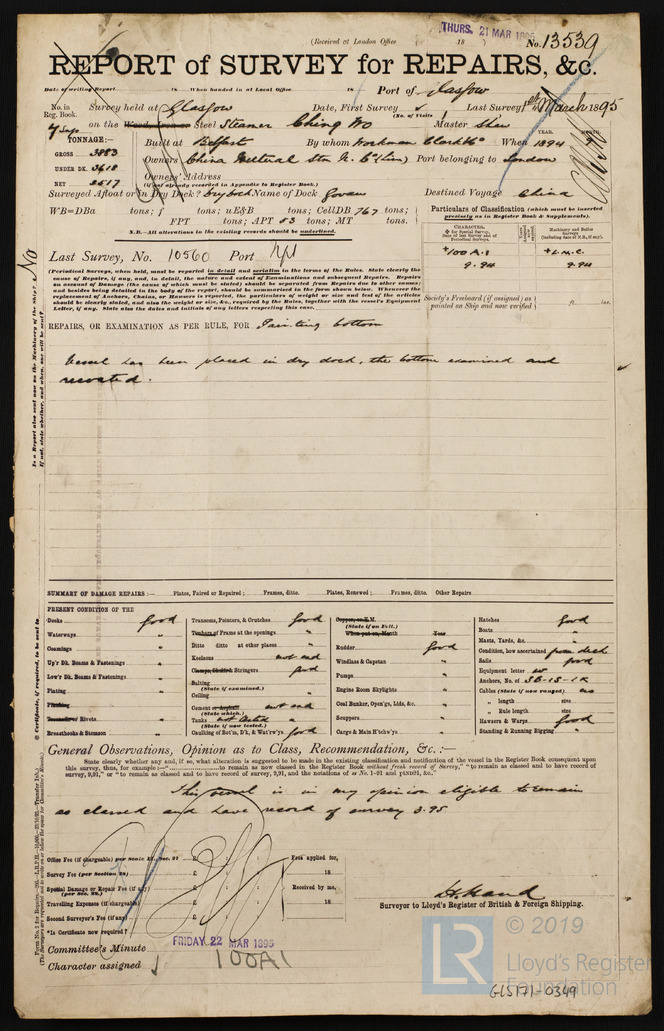 (Received at London Office THURS. 21 MAR 1895 18 ) No. 13539
REPORT of SURVEY for REPAIRS, &c.
Date of writing Report 18 When handed in at Local Office 18 Port of Glasgow
No. in Reg. Book. Survey held at Glasgow Date, First Survey Last Survey March 1895
(No. of Visits )
on the Wood, Iron or Steel Steamer Ching Wo Master Shaw
TONNAGE:— YEAR. MONTH.
GROSS 3883 Built at Belfast By whom Workman Clark & Co When 1894
UNDER DK. 3618 Owners China Mutual Stm N. Co (Lim) Port belonging to London
NET 2517 Owners' Address
(if not already recorded in Appendix to Register Book.)
Surveyed Afloat or in Dry Dock? Dry Dock Name of Dock Govan Destined Voyage China
WB=DBa tons; f tons; uE&B tons; CellDB 767 tons;
FPT tons; APT 83 tons; MT tons.
N.B.—All alterations in the existing records should be underlined.
Particulars of Classification (which must be inserted precisely as in Register Book & Supplements).
CHARACTER, * for Special Survey, Date of last Survey and of Periodical Surveys.
Machinery and Boiler Surveys (including date of N.B., if any).
+100A1 +L.M.C.
9.94 9.94
Society's Freeboard (if assigned) as painted on Ship and now verified ft. ins.
Last Survey, No. 10560 Port
(Periodical Surveys, when held, must be reported in detail and seriatim in the terms of the Rules. State clearly the cause of Repairs, if any, and, in detail, the nature and extent of Examinations and subsequent Repairs. Repairs on account of Damage (the cause of which must be stated) should be separated from Repairs due to other causes; and besides being detailed in the body of the report, should be summarised in the form shown below. Whenever the replacement of Anchors, Chains, or Hawsers is reported, the particulars of weight or size and test of the articles should be clearly stated, and also the weight or size, &c., required by the Rules, together with the vessel's Equipment Letter, if any. State also the dates and initials of any letters respecting this case.
REPAIRS, OR EXAMINATION AS PER RULE, FOR Painting bottom
Vessel has been placed in dry dock, the bottom examined and
recoated.
Is a Report also sent now on the Machinery of the Ship? No
If not, state whether, and when, one will be sent?
SUMMARY OF DAMAGE REPAIRS:— Plates, Faired or Repaired; Frames, ditto. Plates, Renewed; Frames, ditto. Other Repairs
PRESENT CONDITION OF THE
Decks good
Waterways "
Coamings "
Up'r Dk. Beams & Fastenings "
Low'r Dk. Beams & Fastenings "
Plating "
Planking
Treenails or Rivets "
Breasthooks & Stemson "
Transoms, Pointers, & Crutches good
Timbers of Frame at the openings "
Ditto ditto at other places "
Keelsons not seen
Clamps, Shelves & Stringers good
Salting
(State if examined.)
Ceiling "
Cement or Asphalt not seen
(State which.)
Tanks not tested
(State if now tested.)
Caulking of Bot'm, D'k, & Wat'rw'ys good
Copper, or Y.M.
(State if on Felt.)
When put on, Month Year
Rudder good
Windlass & Capstan "
Pumps "
Engine Room Skylights "
Coal Bunker, Open'gs, Lids, &c. "
Scuppers "
Cargo & Main H'tchw'ys "
Hatches good
Boats "
Masts, Yards, &c. "
Condition, how ascertained from deck
Sails good
Equipment letter
Anchors, No. of 3B-1S-1K
Cables (State if now ranged) no
" length size
" Rule length size
Hawsers & Warps good
Standing & Running Rigging "
General Observations, Opinion as to Class, Recommendation, &c.:—
State clearly whether any, and if so, what alteration is suggested to be made in the existing classification and notification of the vessel in the Register Book consequent upon this survey, thus, for example:—"........to remain as now classed in the Register Book without fresh record of Survey," "to remain as classed and to have record of survey, 9,91," or "to remain as classed and to have record of survey, 9,91, and the notations of ss No. 1-91 and ptND91, &c."
This vessel is in my opinion eligible to remain
as classed and have record of survey 3.95
Office Fee (if chargeable) per Scale II., Sec. 27 £ : : Fees applied for,
Survey Fee (per Section 28) £ : : 18
Special Damage or Repair Fee (if any) £ : : Received by me,
(per Sec. 28.)
Travelling Expenses (if chargeable) £ : : 18
Second Surveyor's Fee (if any) £ : :
Surveyor to Lloyd's Register of British & Foreign Shipping.
*Is Certificate now required?
Committee's Minute FRIDAY 22 MAR 1895
Character assigned 100A1
LR © 2019
Lloyd's Register
Foundation
GLS171-0349